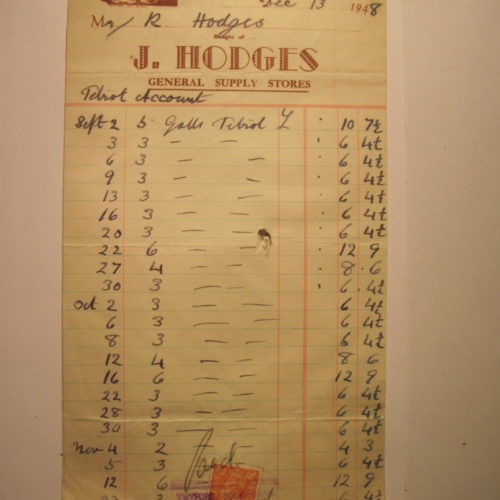 Dec 13 1948
Mr R Hodges
Bought of
J. HODGES
GENERAL SUPPLY STORES
Petrol Account
Sept 2 5 Galls Petrol £ 10 7½
3 3 — — 6 4½
6 3 — — 6 4½
9 3 — — 6 4½
13 3 — — 6 4½
16 3 — — 6 4½
20 3 — — 6 4½
22 6 — — 12 9
27 4 — — 8 6
30 3 — — 6 4½
Oct 2 3 — — 6 4½
6 3 — — 6 4½
8 3 — — 6 4½
12 4 — — 8 6
16 6 — — 12 9
22 3 — — 6 4½
28 3 — — 6 4½
30 3 — — 6 4½
Nov 4 2 4 3
5 3 6 4½
12 6 12 9